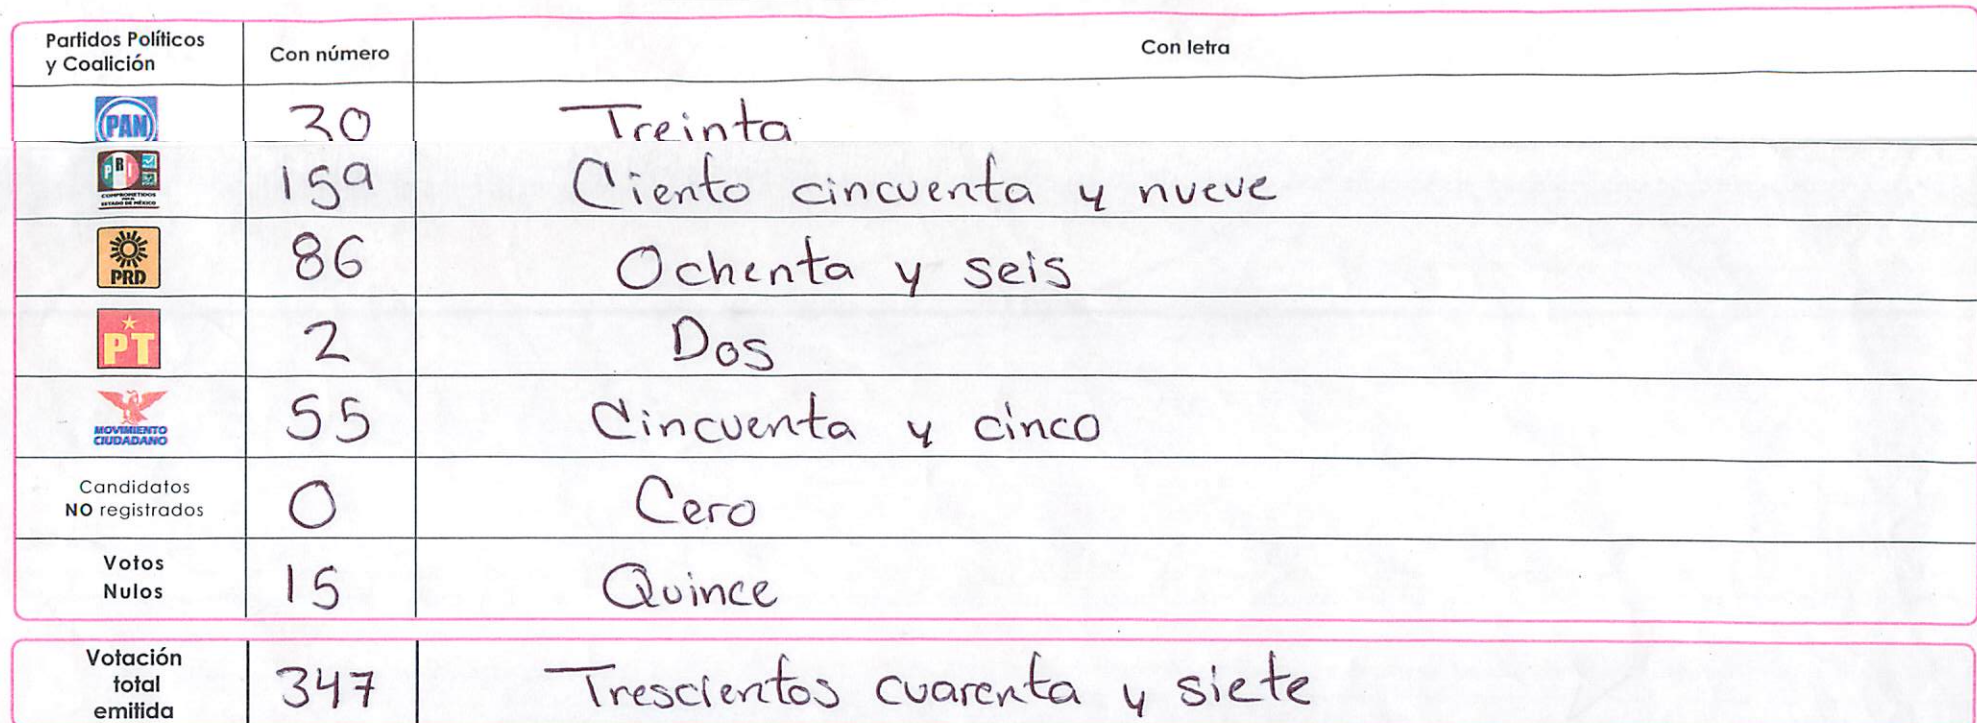 Partidos Políticos y Coalición Con número Con letra
PAN 30 Treinta
PRI 159 Ciento cincuenta y nueve
PRD 86 Ochenta y seis
PT 2 Dos
MOVIMIENTO CIUDADANO 55 Cincuenta y cinco
Candidatos NO registrados 0 Cero
Votos Nulos 15 Quince
Votación total emitida 347 Trescientos cuarenta y siete